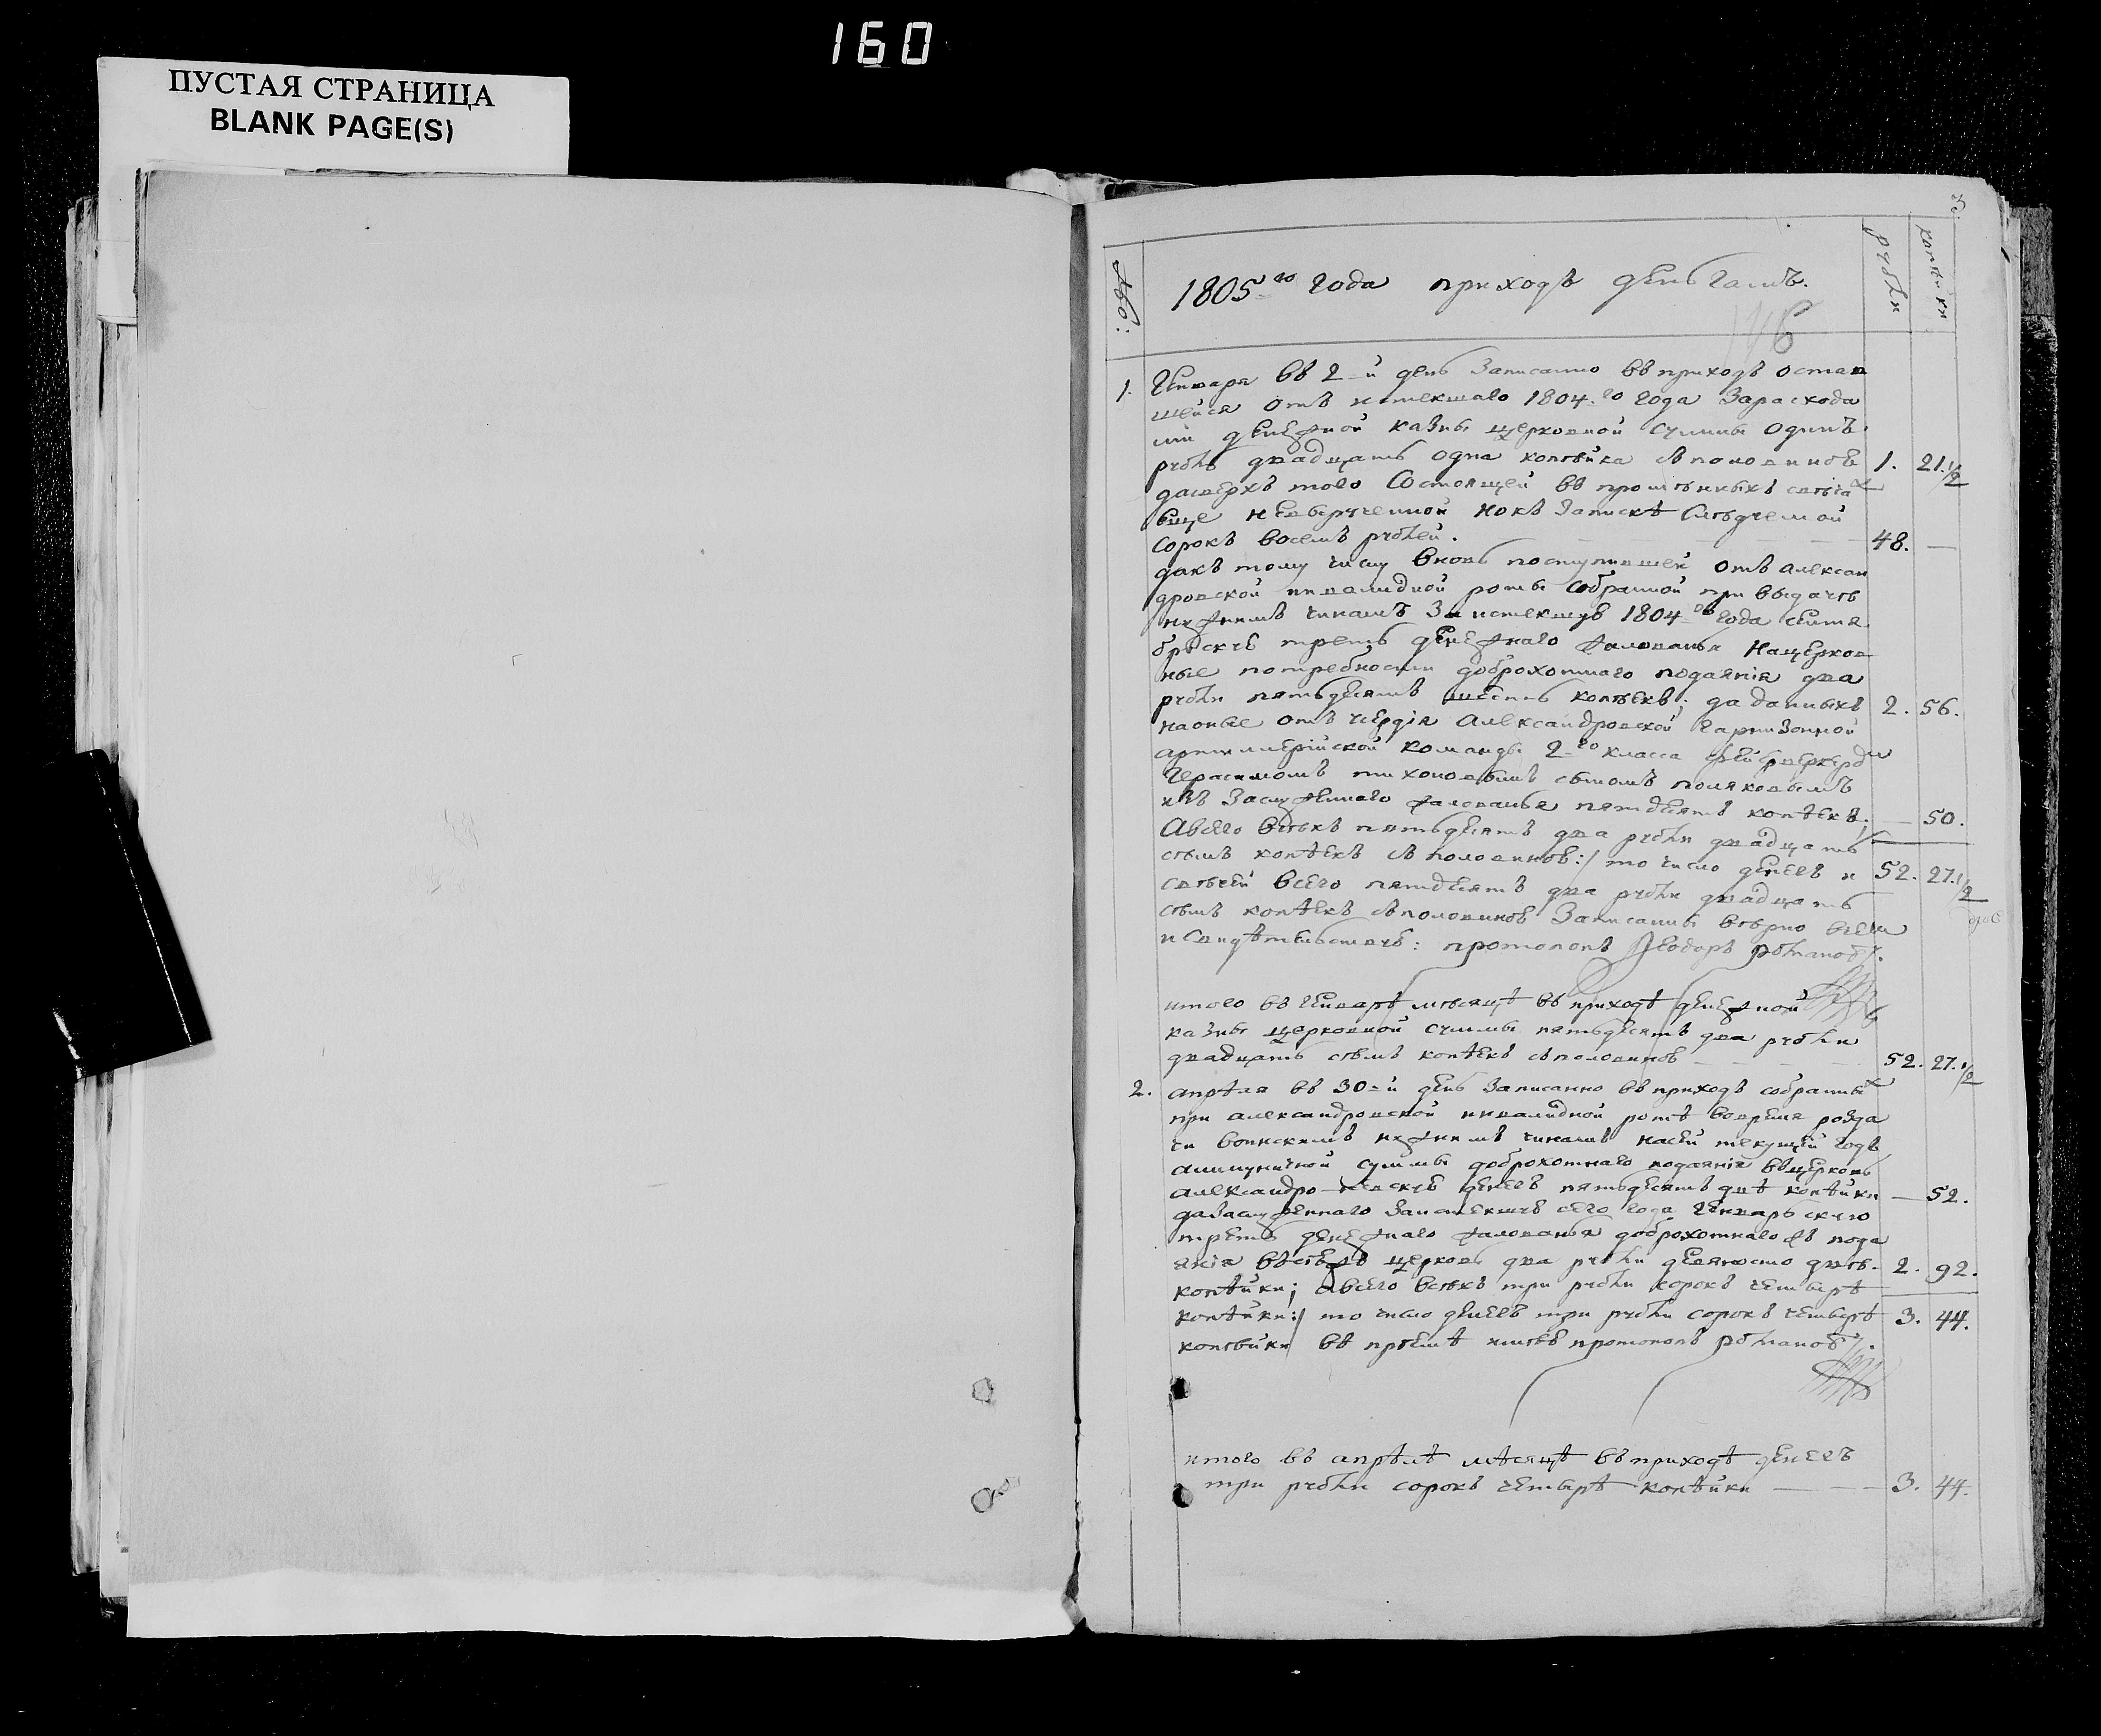 160
ПУСТАЯ СТРАНИЦА
BLANK PAGE(S)
3.
рубли
копѣйки
1805го года приходъ деньгамъ.
1. Генваря въ 2-й день Записанно въ приходъ остав
шейся отъ истекшаго 1804.го года Зарасхода
ми денежной казны церковной суммы одинъ
рубль двадцать одна копѣйка съ половиною 1. 21.1/2
дасверхъ того Состоящей въ
еще но къ Запискѣ Слѣдуемой
сорокъ восемь рублей. — 48. —
дакъ тому числу вновь поступившей отъ алексан
дровской инвалидной роты собранной при выдачѣ
нижнимъ чинамъ За истекшую 1804го года сентя
брскую треть денежнаго жалованья Нацерков
ные потребности доброхотнаго подаянія два
рубли пятьдесятъ шесть копѣекъ; да данныхъ 2. 56.
наоные отъ усердія Александровской Гарнизонной
артиллерійской команды 2-го класса фейерверкером
Герасимомъ тихоновымъ сыномъ поляковымъ
изъ Заслуженнаго жалованья пятдесятъ копѣекъ; — 50.
Авсего всѣхъ пятьдесятъ два рубли двадцать
семь копѣекъ съ половиною:/ то число денегъ и 52. 27.1/2
свѣчей всего пятдесятъ два рубли двадцать
семь копѣекъ съполовиною Записаны вѣрно
и Свидѣтельствую: протопопъ Ѳеодоръ
итого въ Генварѣ мѣсяцѣ въ приходѣ денежной
казны церковной суммы пятьдесятъ два рубли
двадцать семь копѣекъ съполовиною — 52. 27.1/2
2. апрѣля въ 30-й день Записанно въ приходъ собранных
при александровской инвалидной ротѣ вовремя розда
чи воинскимъ нижнимъ чинамъ насей текущей годъ
аммуничной суммы доброхотнаго подаянія въцерковь
александро-невскую денегъ пятьдесятъ двѣ копѣйки — 52.
дазаслуженнаго Заистекшую сего года Генварьскую
треть денежнаго жалованья доброхотнаго жъ пода
янія въ церковь два рубли девяносто двѣ 2. 92.
копѣйки; Авсего всѣхъ три рубли сорокъ четырѣ
копѣйки:/ то число денегъ три рубли сорокъ четырѣ 3. 44.
копѣйки въ пріемѣ имѣю протопопъ
итого въ апрѣлѣ мѣсяцѣ въ приходѣ денегъ
три рубли сорокъ четырѣ копѣйки — 3. 44.